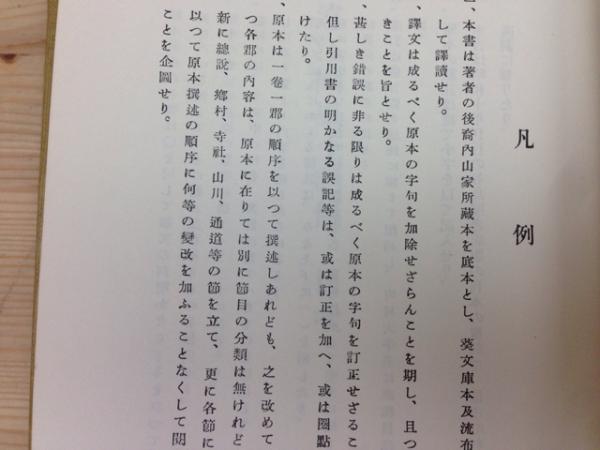 凡例
一、本書は著者の後裔內山家所藏本を底本とし、葵文庫本及流布
して譯讀せり。
、譯文は成るべく原本の字句を加除せざらんことを期し、且つ
きことを旨とせり。
、甚しき錯誤に非る限りは成るべく原本の字句を訂正せざるこ
但し引用書の明かなる誤記等は、或は訂正を加へ、或は圈點
けたり。
、原本は一卷一郡の順序を以つて撰述しあれども、之を改めて
つ各郡の內容は、原本に在りては別に節目の分類は無けれど
新に總說、鄕村、寺社、山川、通道等の節を立て、更に各節に
以つて原本撰述の順序に何等の變改を加ふることなくして閱
ことを企圖せり。